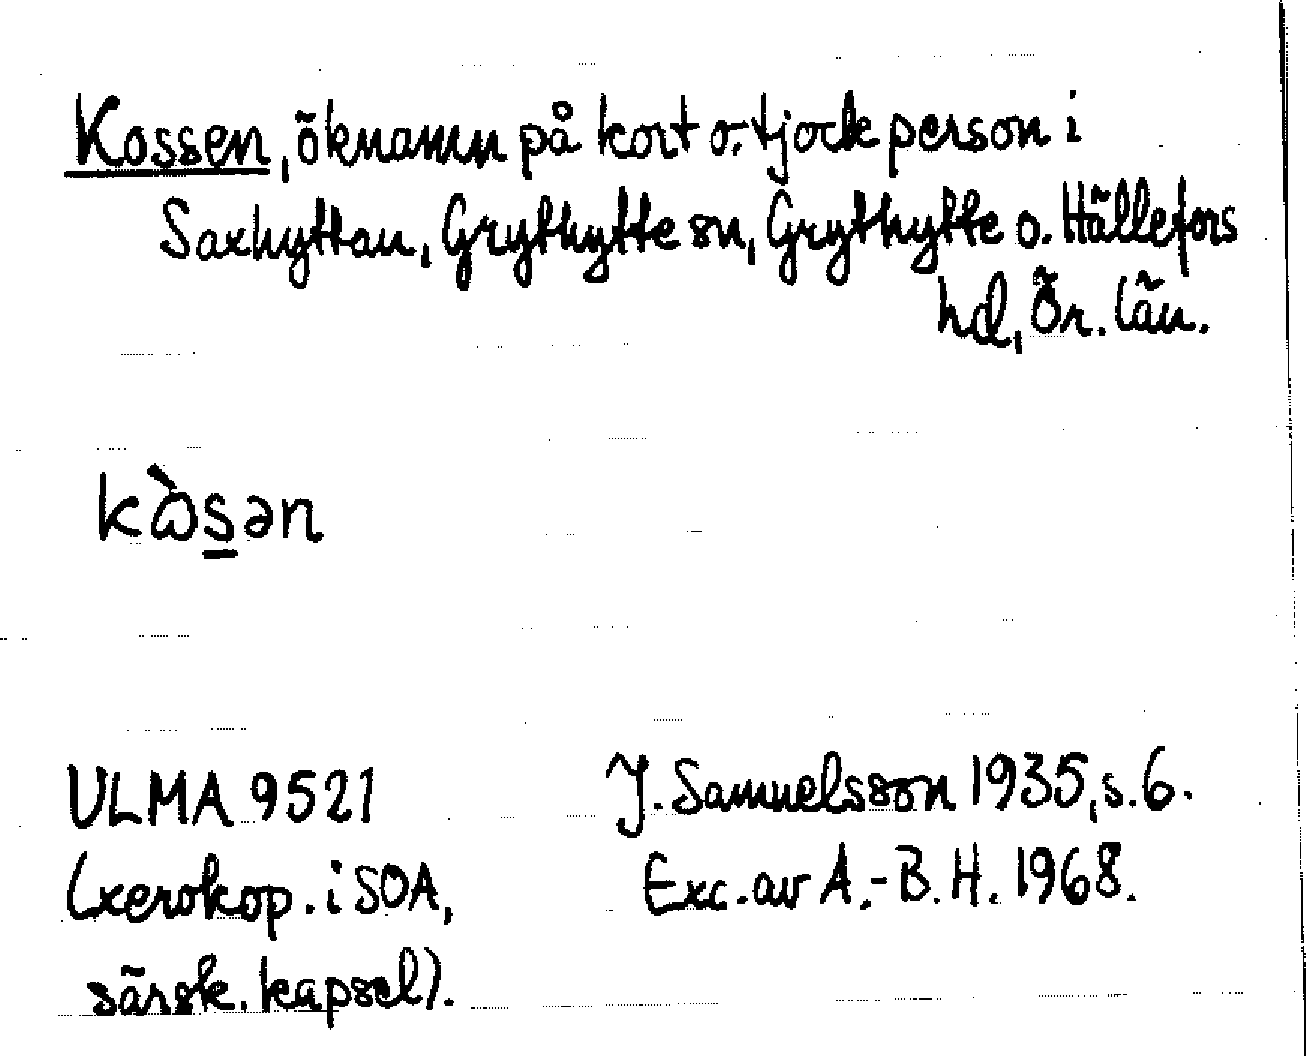 Kossen, öknamn på kort o. tjock person i
Saxhyttan, Grythytte sn, Grythytte o. Hällefors
hd, Ör. län.
kὼs̲ən
ULMA 9521
J. Samuelsson 1935, s. 6.
(xerokop. i SOA,
Exc. av A.-B. H. 1968.
särsk. kapsel).